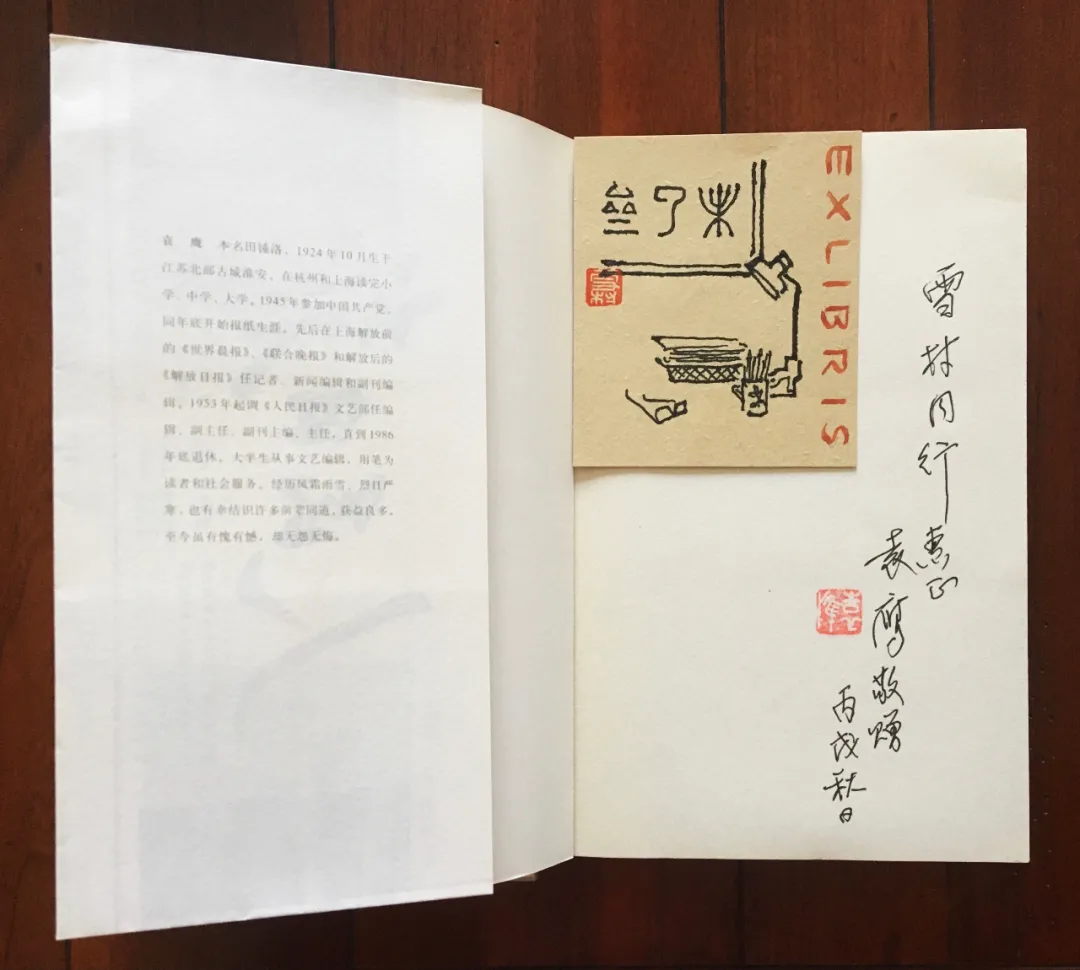 袁　鹰　本名田锺洛，1924年10月生于
江苏北部古城淮安，在杭州和上海读完小
学、中学、大学。1945年参加中国共产党，
同年底开始报纸生涯。先后在上海解放前
的《世界晨报》、《联合晚报》和解放后的
《解放日报》任记者、新闻编辑和副刊编
辑。1953年起调《人民日报》文艺部任编
辑、副主任、副刊主编、主任，直到1986
年底退休。大半生从事文艺编辑，用笔为
读者和社会服务。经历风霜雨雪、烈日严
寒，也有幸结识许多前辈同道，获益良多。
至今虽有愧有憾，却无怨无悔。
EXLIBRIS
雪村同行惠正
袁鹰敬赠
丙戌秋日